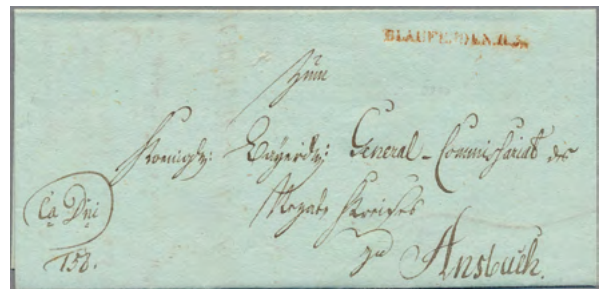 BLAUFELDEN.R.3.
Zum
Koenigl: Bayerisch: General-Commissariat des
Rezat Kreises
Ca Dni
zu Ansbach.
158.